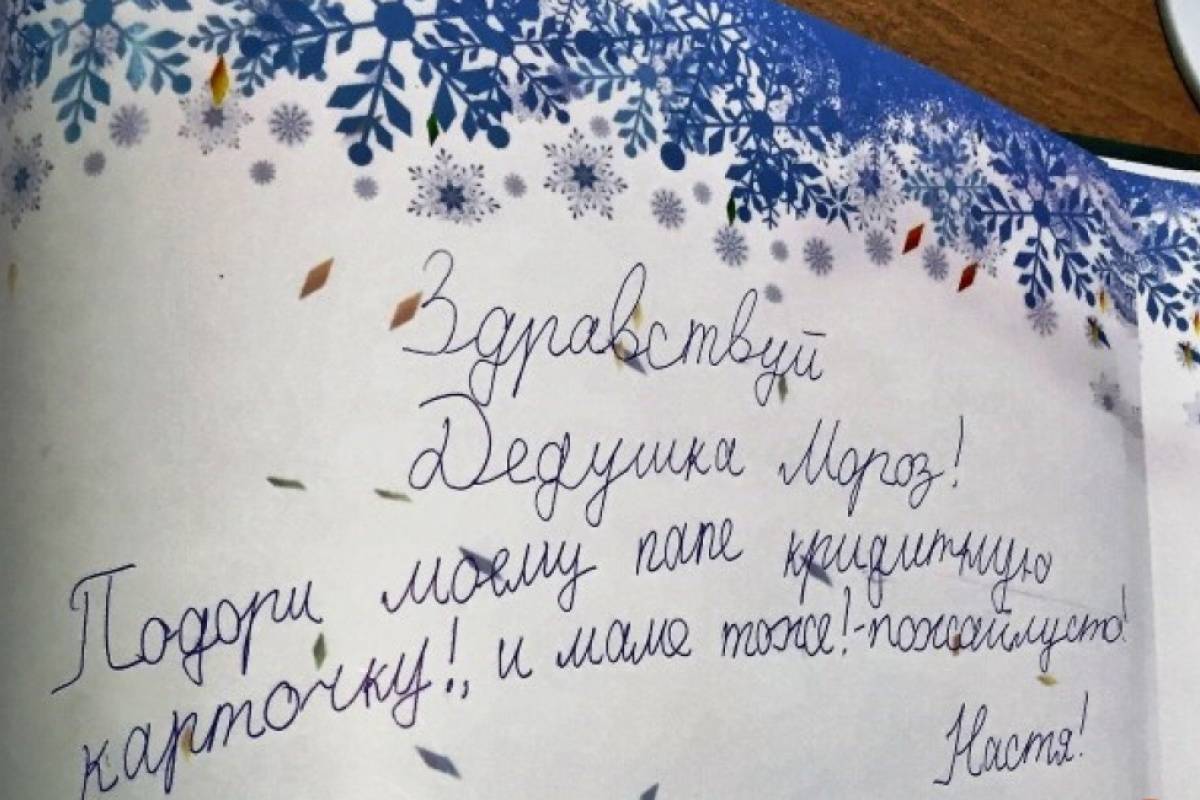 Здравствуй
Дедушка Мороз!
Подори моему папе кридитную
карточку!, и маме тоже!-пожайлусто!
Настя!